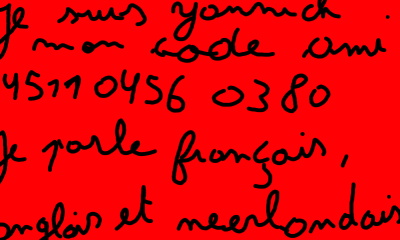 Je suis yannick .
mon code ami
4511 0456 0380
Je parle français,
anglais et neerlandais